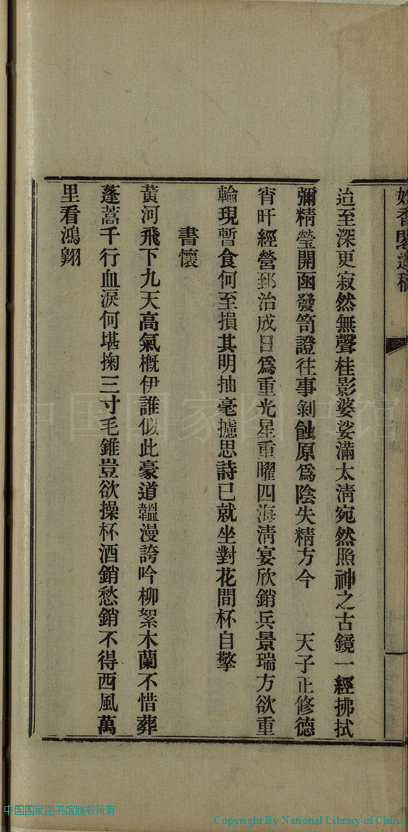 迨至深更寂然無聲桂影婆娑滿太淸宛然照神之古鏡一經拂拭
彌精瑩開函發笥證往事剝蝕原爲陰失精方今　天子止修德
宵旰經營郅治成日爲重光星重曜四海淸宴欣銷兵景瑞方欲重
輪現暫食何至損其明抽毫攄思詩已就坐對花間杯自擎
書懷
黃河飛下九天高氣槪伊誰似此豪道韞漫誇吟柳絮木蘭不惜葬
蓬蒿千行血淚何堪掬三寸毛錐豈欲操杯酒銷愁銷不得西風萬
里看鴻翱
中国国家图书馆版权所有
Copyright By National Library of China